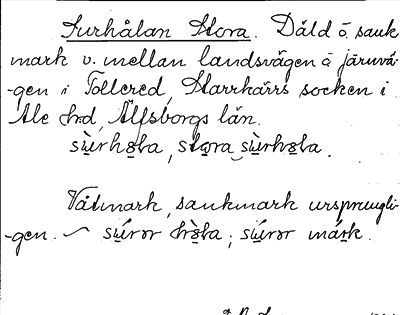 Surhålan Stora. Dåld o. sank
mark v. mellan landsvägen o järnvä-
-gen i Tollered, Starrkärrs socken i
Ale hrd, Älfsborgs län.
sùrhola, stora sùrhola.
Våtmark, sankmark urspringli-
-gen. ~ súrər hòla; súrər márk.